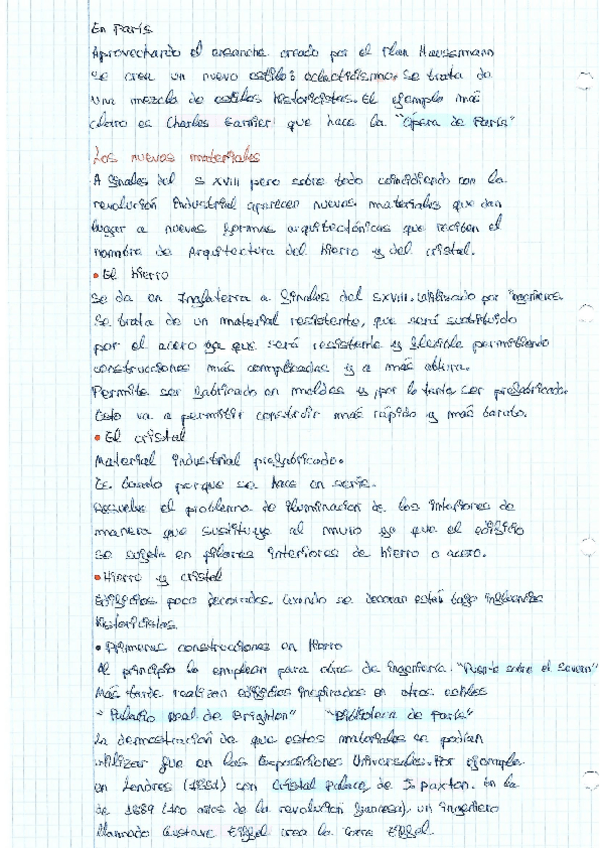 En París
Aprovechando el ensanche creado por el Plan Haussmann
se crea un nuevo estilo: eclecticismo. Se trata de
una mezcla de estilos historicistas. El ejemplo más
claro es Charles Garnier que hace la "Ópera de París"
Los nuevos materiales
A finales del s XVIII pero sobre todo coincidiendo con la
revolución industrial aparecen nuevos materiales que dan
lugar a nuevas formas arquitectónicas que reciben el
nombre de Arquitectura del hierro y del cristal.
• El hierro
Se da en Inglaterra a finales del s XVIII. Utilizado por ingenieros.
Se trata de un material resistente, que será sustituido
por el acero ya que será resistente y flexible permitiendo
construcciones más complicadas y a más altura.
Permite ser fabricado en moldes y por lo tanto ser prefabricado.
Esto va a permitir construir más rápido y más barato.
• El cristal
Material industrial prefabricado.
Es barato porque se hace en serie.
Resuelve el problema de iluminación de los interiores de
manera que sustituye al muro ya que el edificio
se sujeta en pilares interiores de hierro o acero.
• Hierro y cristal
Edificios poco decorados. Cuando se decoran están bajo influencias
historicistas.
• Primeras construcciones en hierro
Al principio lo emplean para obras de ingeniería. "Puente sobre el Severn"
Más tarde realizan edificios inspirados en otros estilos
"Palacio Real de Brighton" "Biblioteca de París"
La demostración de que estos materiales se podían
utilizar fue en las Exposiciones Universales. Por ejemplo
en Londres (1851) con Cristal Palace de J. Paxton. En la
de 1889 (100 años de la revolución francesa). un ingeniero
llamado Gustave Eiffel crea la torre Eiffel.